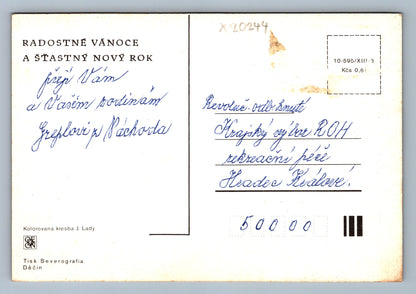 X 20244
RADOSTNÉ VÁNOCE
A ŠŤASTNÝ NOVÝ ROK
přejí Vám
a Vašim rodinám
z Náchoda
10-595/XIII-3
Kčs 0,6
Revoluč. odb. hnutí
Krajský výbor ROH
rekreační péče
Hradec Králové.
50000
Kolorovaná kresba J. Lady
Tisk Severografia
Děčín